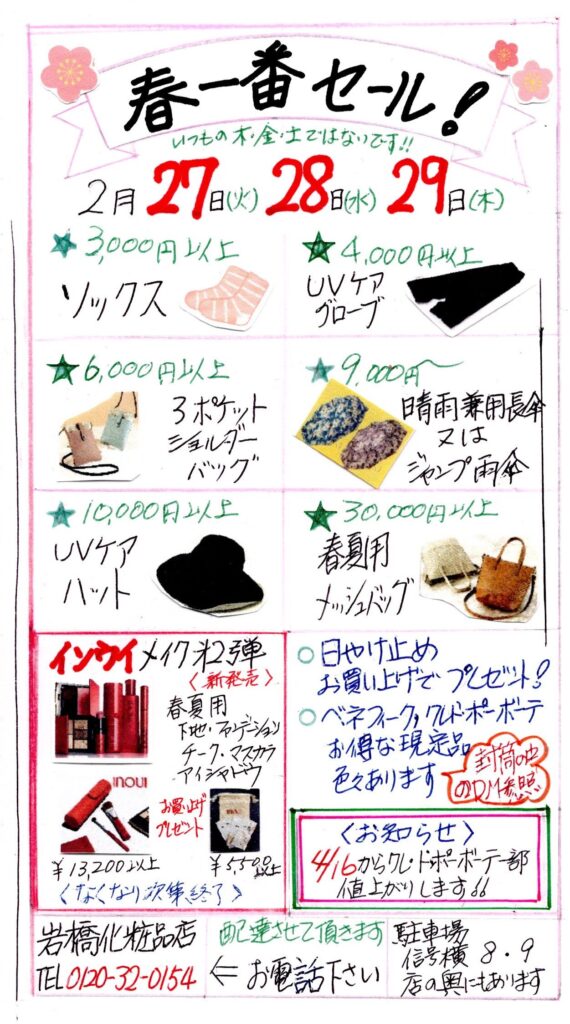 春一番セール!
いつもの木・金・土ではないです!!
2月27日(火)28日(水)29日(木)
★3,000円以上
ソックス
★4,000円以上
UVケア
グローブ
★6,000円以上
3ポケット
ショルダー
バッグ
★9,000円〜
晴雨兼用長傘
又は
ジャンプ雨傘
★10,000円以上
UVケア
ハット
★30,000円以上
春夏用
メッシュバッグ
インウイメイク第2弾
〈新発売〉
春夏用
下地・ファンデーション
チーク・マスカラ
アイシャドウ
INOUI
お買上げ
プレゼント
¥13,200以上
¥5,500以上
〈なくなり次第終了〉
○日やけ止め
お買い上げでプレゼント!
○ベネフィーク,クレ・ド・ポーボーテ
お得な現定品
色々あります
封筒の中
のDM参照
〈お知らせ〉
4/16からクレ・ド・ポーボーテ一部
値上がりします!!
岩橋化粧品店
TEL 0120-32-0154
配達させて頂きます
⇐お電話下さい
駐車場
信号横8・9
店の奥にもあります